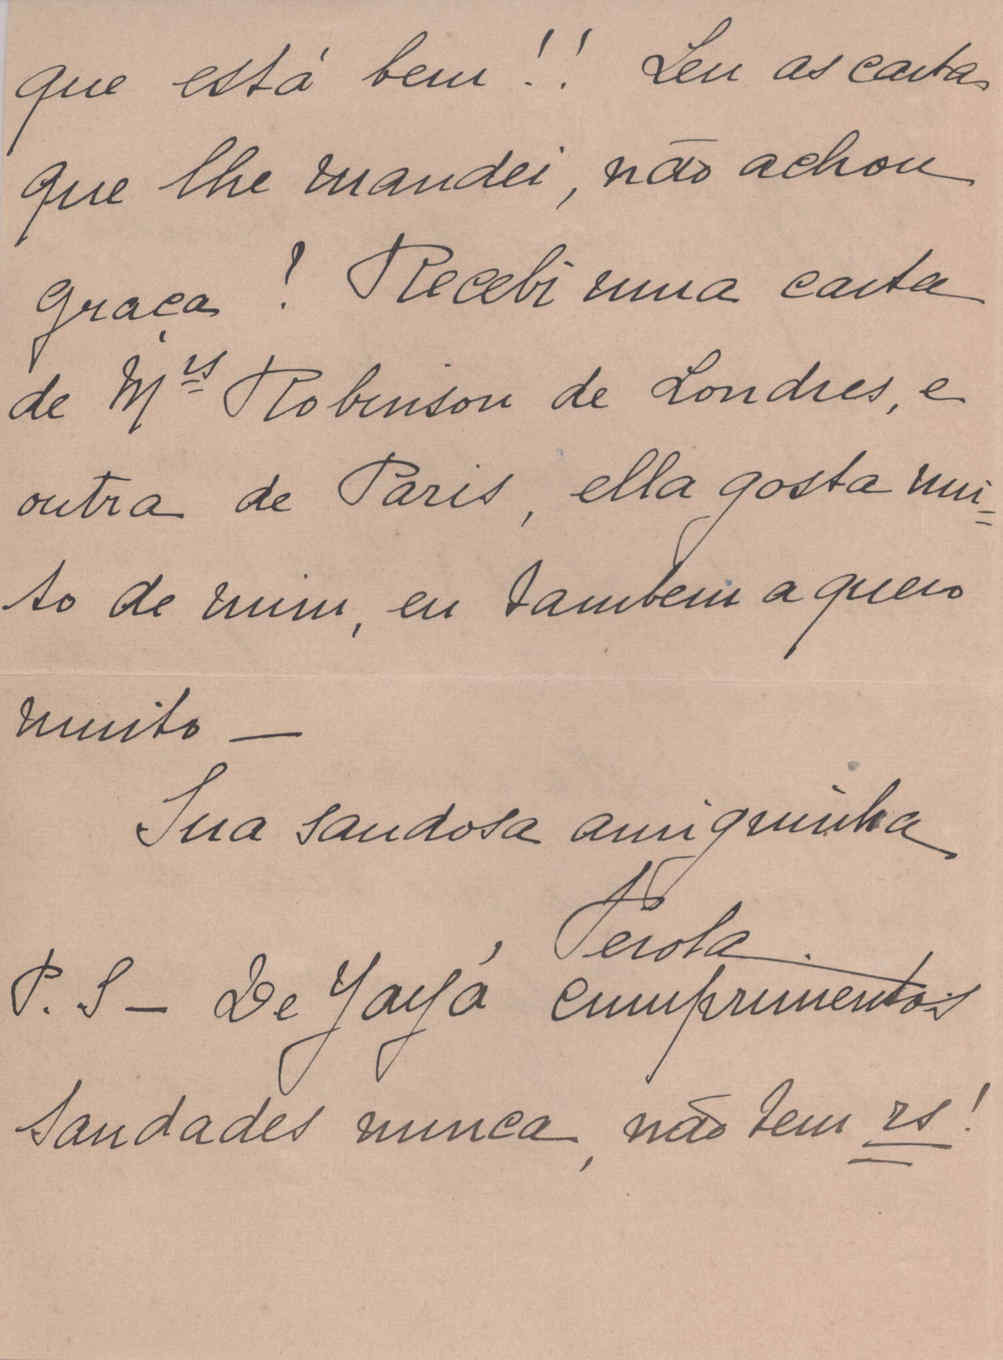 que está bem!! Leu as cartas
que lhe mandei, não achou
graça! Recebi uma carta
de Mrs Robinson de Londres, e
outra de Paris, ella gosta mui-
to de mim, eu tambem a quero
muito —
Sua saudosa amiguinha
Perola.
P. S — De Yayá cumprimentos
saudades nunca, não tem rs!